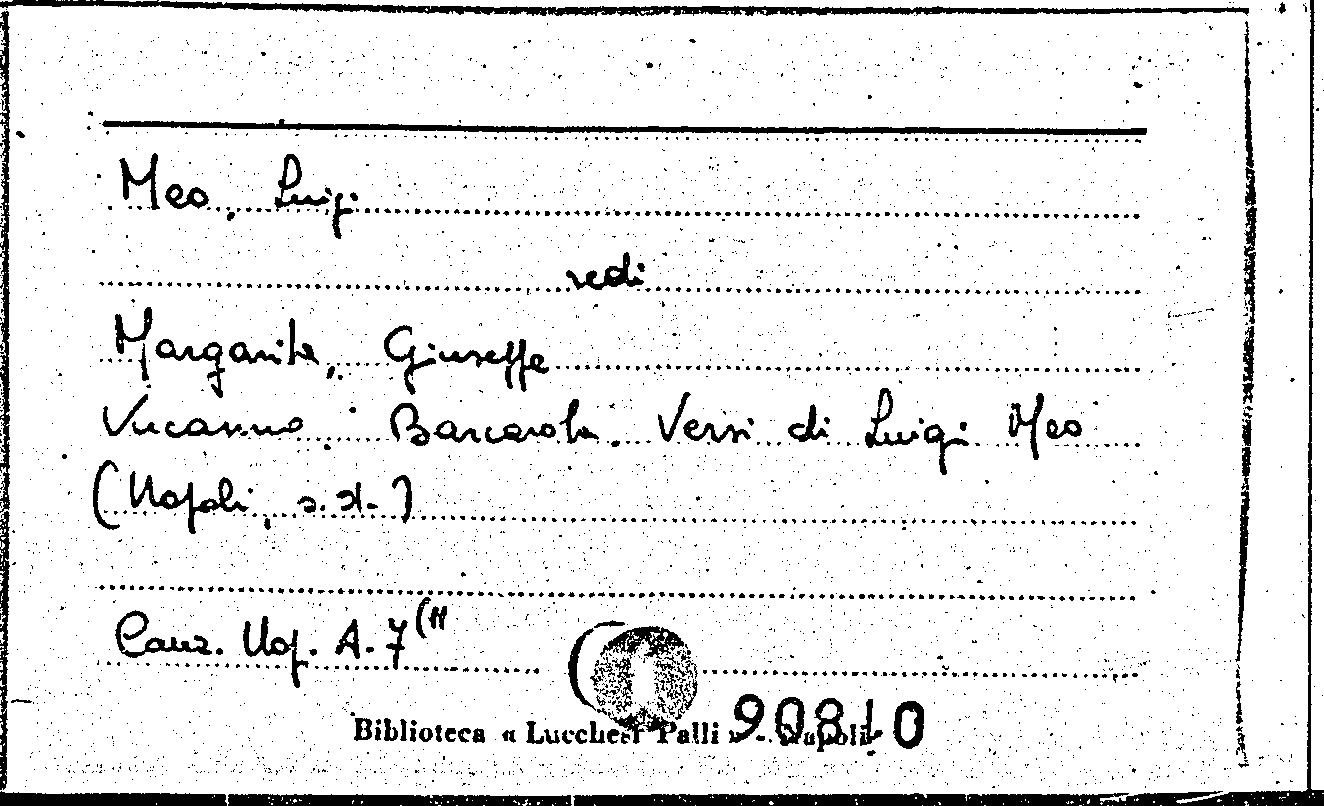 Meo, Luigi
vedi
Margarita, Giuseppe
Vucanno. Barcarola. Versi di Luigi Meo
(Napoli, s.d.)
Canz. Nap. A. 7 (11
Biblioteca « Lucchesi Palli » - Napoli
90810